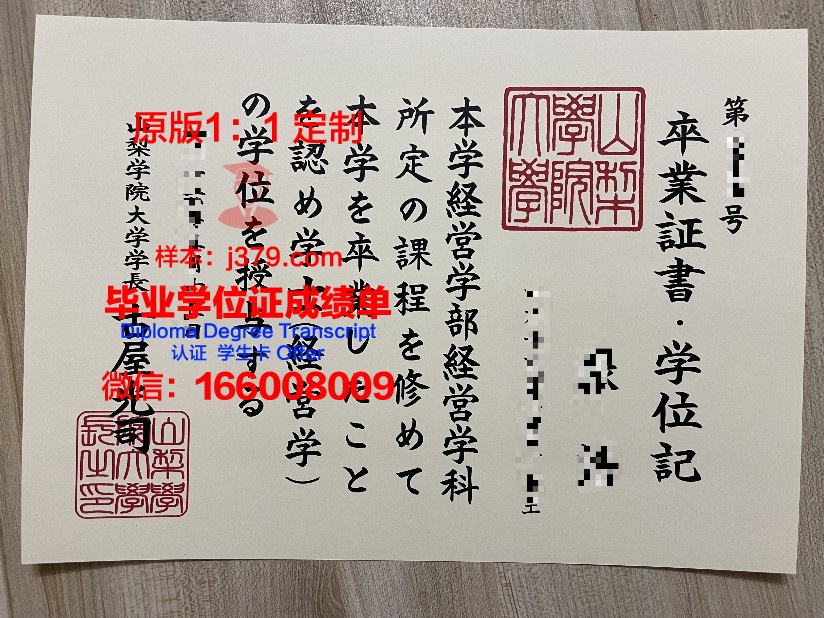 第
号
卒業証書·学位記
山梨
學院
大學
本学経営学部経営学科
所定の課程を修めて
本学を卒業したこと
を認め学士(経営学)
の学位を授与する
山梨学院大学学長 古屋光司
山梨學
院大學
長之印
原版1：1 定制
样本：j379.com
毕业学位证成绩单
Diploma Degree Transcript
认证 学生卡 Offer
微信：166008009